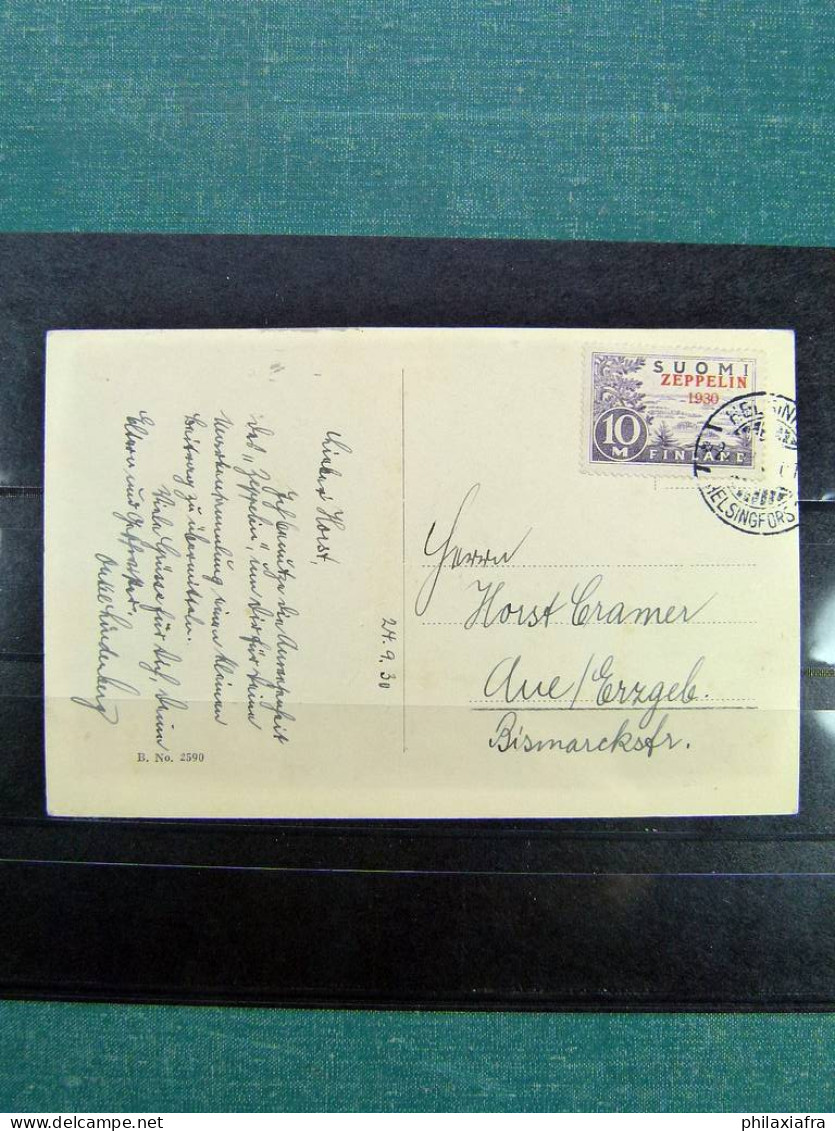 Lieber Horst,
Ich benutze die Anwesenheit
des "Zeppelin", um Dir für Deine
einen kleinen
Beitrag zu übermitteln.
Viele Grüße für Dich, Deine
Eltern und
Onkel Lindenberg
24.9.30
B. No. 2590
SUOMI
ZEPPELIN
1930
10
M
FINLAND
HELSINKI
HELSINGFORS
Herrn
Horst Cramer
Aue/Erzgeb.
Bismarckstr.
www.delcampe.net
philaxiafra